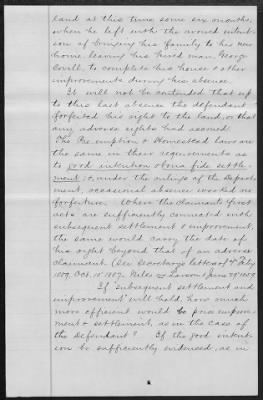 land at this time some six months,
when he left with the avowed inten-
sion of bringing his family to his new
home, leaving his hired man, George
Covill, to complete his house & other
improvements during his absence.
It will not be contended that up
to this last absence the defendant
forfeited his right to the land, or that
any adverse rights had accrued.
The Pre-emption & Homestead laws are
the same in their requirements as
to good intention & bona fide settle-
ment, & under the rulings of the Depart-
ment, occasional absence worked no
forfeiture. Where the claimants first
acts are sufficiently connected with
subsequent settlement & improvement,
the same would carry the date of
his right beyond that of an adverse
claimant. (See Secretary's letters of
Oct. 15"
If subsequent settlement and
improvement will hold, how much
more efficient would be prior improve-
ment & settlement, as in the case of
the defendant? If the good inten-
tion be sufficiently evidenced, as in